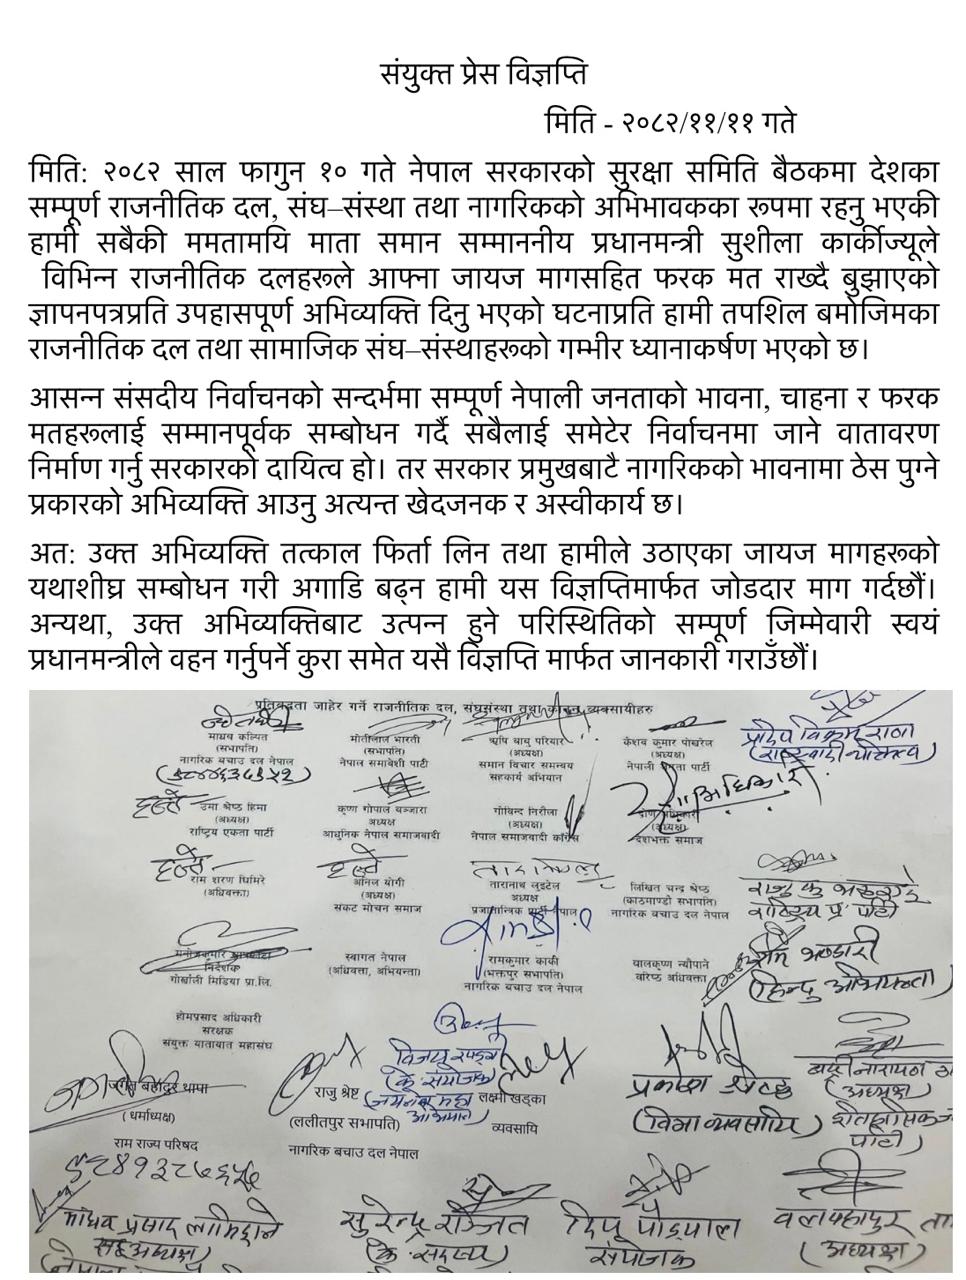 संयुक्त प्रेस विज्ञप्ति
मिति - २०८२/११/११ गते
मिति: २०८२ साल फागुन १० गते नेपाल सरकारको सुरक्षा समिति बैठकमा देशका
सम्पूर्ण राजनीतिक दल, संघ–संस्था तथा नागरिकको अभिभावकका रूपमा रहनु भएकी
हामी सबैकी ममतामयि माता समान सम्माननीय प्रधानमन्त्री सुशीला कार्कीज्यूले
विभिन्न राजनीतिक दलहरूले आफ्ना जायज मागसहित फरक मत राख्दै बुझाएको
ज्ञापनपत्रप्रति उपहासपूर्ण अभिव्यक्ति दिनु भएको घटनाप्रति हामी तपशिल बमोजिमका
राजनीतिक दल तथा सामाजिक संघ–संस्थाहरूको गम्भीर ध्यानाकर्षण भएको छ।
आसन्न संसदीय निर्वाचनको सन्दर्भमा सम्पूर्ण नेपाली जनताको भावना, चाहना र फरक
मतहरूलाई सम्मानपूर्वक सम्बोधन गर्दै सबैलाई समेटेर निर्वाचनमा जाने वातावरण
निर्माण गर्नु सरकारको दायित्व हो। तर सरकार प्रमुखबाटै नागरिकको भावनामा ठेस पुग्ने
प्रकारको अभिव्यक्ति आउनु अत्यन्त खेदजनक र अस्वीकार्य छ।
अत: उक्त अभिव्यक्ति तत्काल फिर्ता लिन तथा हामीले उठाएका जायज मागहरूको
यथाशीघ्र सम्बोधन गरी अगाडि बढ्न हामी यस विज्ञप्तिमार्फत जोडदार माग गर्दछौं।
अन्यथा, उक्त अभिव्यक्तिबाट उत्पन्न हुने परिस्थितिको सम्पूर्ण जिम्मेवारी स्वयं
प्रधानमन्त्रीले वहन गर्नुपर्ने कुरा समेत यसै विज्ञप्ति मार्फत जानकारी गराउँछौं।
प्रतिबद्धता जाहेर गर्ने राजनीतिक दल, संघसंस्था तथा कानून व्यवसायीहरु
माधव कल्पित
(सभापति)
नागरिक बचाउ दल नेपाल
मोतीलाल भारती
(सभापति)
नेपाल समावेशी पार्टी
ऋषि बाबु परियार
(अध्यक्ष)
समान विचार समन्वय
सहकार्य अभियान
केशव कुमार पोखरेल
(अध्यक्ष)
नेपाली जनता पार्टी
प्रदिप विक्रम राणा
उमा श्रेष्ठ हिमा
(अध्यक्ष)
राष्ट्रिय एकता पार्टी
कृष्ण गोपाल बञ्जारा
अध्यक्ष
आधुनिक नेपाल समाजवादी
गोविन्द निरौला
(अध्यक्ष)
नेपाल समाजवादी काँग्रेस
(अध्यक्ष)
देशभक्त समाज
राम शरण घिमिरे
(अधिवक्ता)
अनिल योगी
(अध्यक्ष)
संकट मोचन समाज
तारानाथ लुइटेल
(अध्यक्ष)
प्रजातान्त्रिक पार्टी नेपाल
लिखित चन्द्र श्रेष्ठ
(काठमाण्डौ सभापति)
नागरिक बचाउ दल नेपाल
निर्देशक
गोर्खाली मिडिया प्रा.लि.
स्वागत नेपाल
(अधिवक्ता, अभियन्ता)
रामकुमार कार्की
(भक्तपुर सभापति)
नागरिक बचाउ दल नेपाल
बालकृष्ण न्यौपाने
वरिष्ठ अधिवक्ता
भण्डारी
(हिन्दु अभियन्ता)
होमप्रसाद अधिकारी
संरक्षक
संयुक्त यातायात महासंघ
जगत बहादुर थापा
(धर्माध्यक्ष)
राम राज्य परिषद
राजु श्रेष्ट
(ललीतपुर सभापति)
नागरिक बचाउ दल नेपाल
लक्ष्मी खड्का
व्यवसायि
प्रकाश श्रेष्ठ
(अध्यक्ष)
पार्टी)
माधव प्रसाद लामिछाने
सह अध्यक्ष)
सुरेन्द्र रञ्जित
(के. सदस्य)
दिपु पौड्याल
संयोजक
(अध्यक्ष)